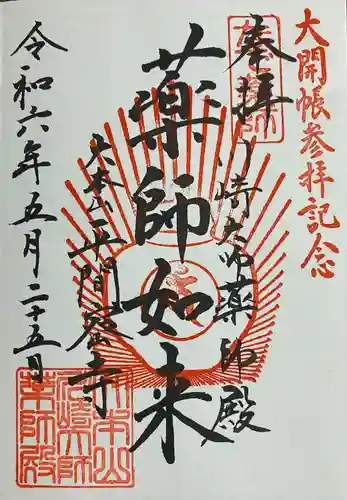 大開帳参拝記念
奉拝
川崎大師薬師殿
薬師如来
大本山平間密寺
令和六年五月二十五日
大本山
川崎大師
薬師殿